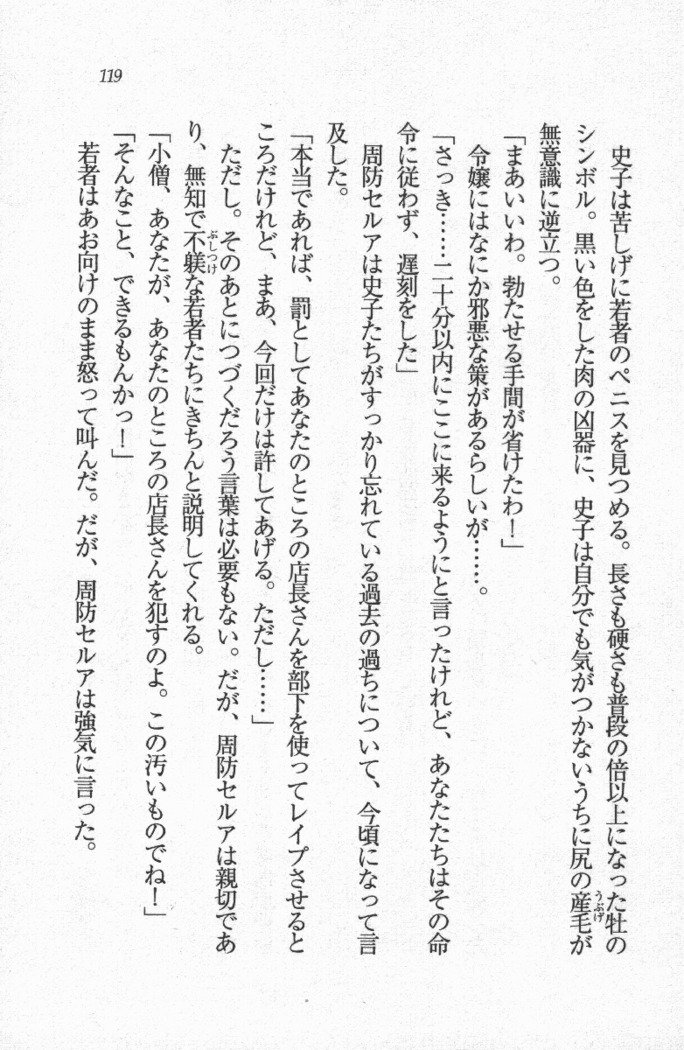 史子は苦しげに若者のペニスを見つめる。長さも硬さも普段の倍以上になった牡の
シンボル。黒い色をした肉の凶器に、史子は自分でも気がつかないうちに尻の産毛が
無意識に逆立つ。
「まあいいわ。勃たせる手間が省けたわ！」
令嬢にはなにか邪悪な策があるらしいが……。
「さっき……二十分以内にここに来るようにと言ったけれど、あなたたちはその命
令に従わず、遅刻をした」
周防セルアは史子たちがすっかり忘れている過去の過ちについて、今頃になって言
及した。
「本当であれば、罰としてあなたのところの店長さんを部下を使ってレイプさせると
ころだけれど、まあ、今回だけは許してあげる。ただし……」
ただし。そのあとにつづくだろう言葉は必要もない。だが、周防セルアは親切であ
り、無知で不躾な若者たちにきちんと説明してくれる。
「小僧、あなたが、あなたのところの店長さんを犯すのよ。この汚いものでね！」
「そんなこと、できるもんかっ！」
若者はあお向けのまま怒って叫んだ。だが、周防セルアは強気に言った。
119